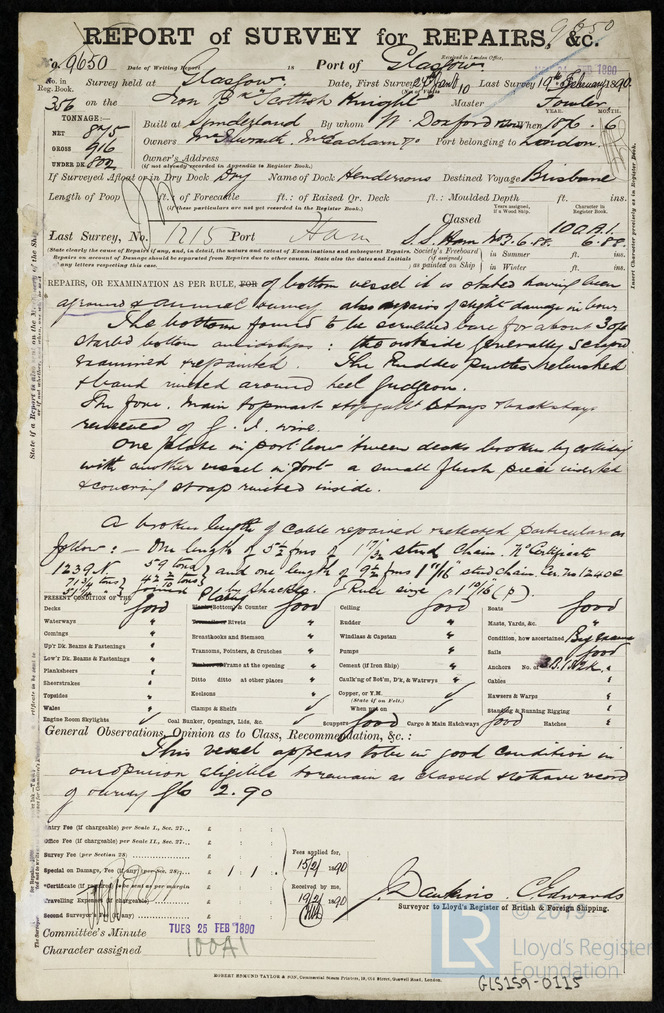 REPORT of SURVEY for REPAIRS, &c.
9650
No. 9650
Date of Writing Report
Port of Glasgow
Received in London Office,
FEB 1890
No. in Reg. Book.
Survey held at Glasgow. Date, First Survey 24th Jan Last Survey 19th February 1890.
356 on the Iron Bk "Scottish Knight" Master Fowler
TONNAGE:—
NET 875
GROSS 916
UNDER DK 802
Built at Sunderland By whom W. Doxford When 1876 . 6
YEAR. MONTH.
Owners McIlwraith, McEacharn & Co Port belonging to London.
Owner's Address
(if not already recorded in Appendix to Register Book.)
If Surveyed Afloat or in Dry Dock Dry Name of Dock Hendersons Destined Voyage Brisbane
Length of Poop ft.: of Forecastle ft.: of Raised Qr. Deck ft.: Moulded Depth ft. ins.
(if these particulars are not yet recorded in the Register Book.)
Years assigned, if a Wood Ship.
Character in Register Book.
Classed
Last Survey, No. 1215 Port Ham S.S. Ham No 3-6.88. 100A1. 6.88
(State clearly the cause of Repairs if any, and, in detail, the nature and extent of Examinations and subsequent Repairs. Repairs on account of Damage should be separated from Repairs due to other causes. State also the dates and Initials of any letters respecting this case.)
Society's Freeboard (if assigned) as painted on Ship
in Summer ft. ins.
in Winter ft. ins.
REPAIRS, OR EXAMINATION AS PER RULE, FOR of bottom vessel it is stated having been
aground & annual survey also repairs of slight damage in bow.
The bottom found to be scrubbed bare for about 30 ft
starbd bottom amidships: the outside generally scraped
examined & repainted. The Rudder pintles rebushed
& band riveted around heel gudgeon.
The fore, main topmast & topgallt stays & backstays
renewed of G. I. wire.
One plate in port bow 'tween decks broken by colliding
with another vessel in port a small flush piece inserted
& covering strap riveted inside.
A broken length of cable repaired & retested particulars as
follow: — One length of 5½ fms of 1 17/32 stud Chain. No Certificate
1239 N. 59 tons and one length of 9½ fms 1 11/16 stud chain. Cer. No 1240C
joined by shackle. Rule size 1 10/16 (p).
PRESENT CONDITION OF THE
Decks good
Waterways "
Comings "
Up'r Dk. Beams & Fastenings "
Low'r Dk. Beams & Fastenings "
Planksheers "
Sheerstrakes "
Topsides "
Wales "
Engine Room Skylights ✓
Plating Bottom & Counter good
Rivets "
Breasthooks and Stemson "
Transoms, Pointers, & Crutches "
Frames at the opening "
Ditto ditto at other places "
Keelsons "
Clamps & Shelfs ✓
Coal Bunker, Openings, Lids, &c. ✓
Ceiling good
Rudder "
Windlass & Capstan "
Pumps "
Cement (if Iron Ship) "
Caulk'ng of Bot'm, D'k, & Watrwys "
Copper, or Y.M. ✓
(State if on Felt.)
When put on ✓
Scuppers good Cargo & Main Hatchways good
Boats good
Masts, Yards, &c. "
Condition, how ascertained By Exam
Sails good
Anchors No. of 3B.1S.2K. "
Cables "
Hawsers & Warps "
Standing & Running Rigging "
Hatches "
General Observations, Opinion as to Class, Recommendation, &c.:
This vessel appears to be in good condition in
our opinion eligible to remain as classed & to have record
of survey Gls 2.90
Entry Fee (if chargeable) per Scale I., Sec. 27... £ : :
Office Fee (if chargeable) per Scale II., Sec. 27... £ : :
Survey Fee (per Section 28) £ : :
Special on Damage, Fee (if any) (per Sec. 28) £ 1 : 1 :
*Certificate (if required) to be sent as per margin
Travelling Expenses (if chargeable) £ : :
Second Surveyor's Fee (if any) £ : :
Fees applied for,
15/2/1890
Received by me,
19/2/1890
J. Dawkins. C. Edwards
Surveyor to Lloyd's Register of British & Foreign Shipping.
Committee's Minute TUES 25 FEB 1890
Character assigned 100A1
ROBERT EDMUND TAYLOR & SON, Commercial Steam Printers, 19, Old Street, Goswell Road, London.
© 2019
LR
Lloyd's Register
Foundation
GLS159-0115
Insert Character precisely as in Register Book.